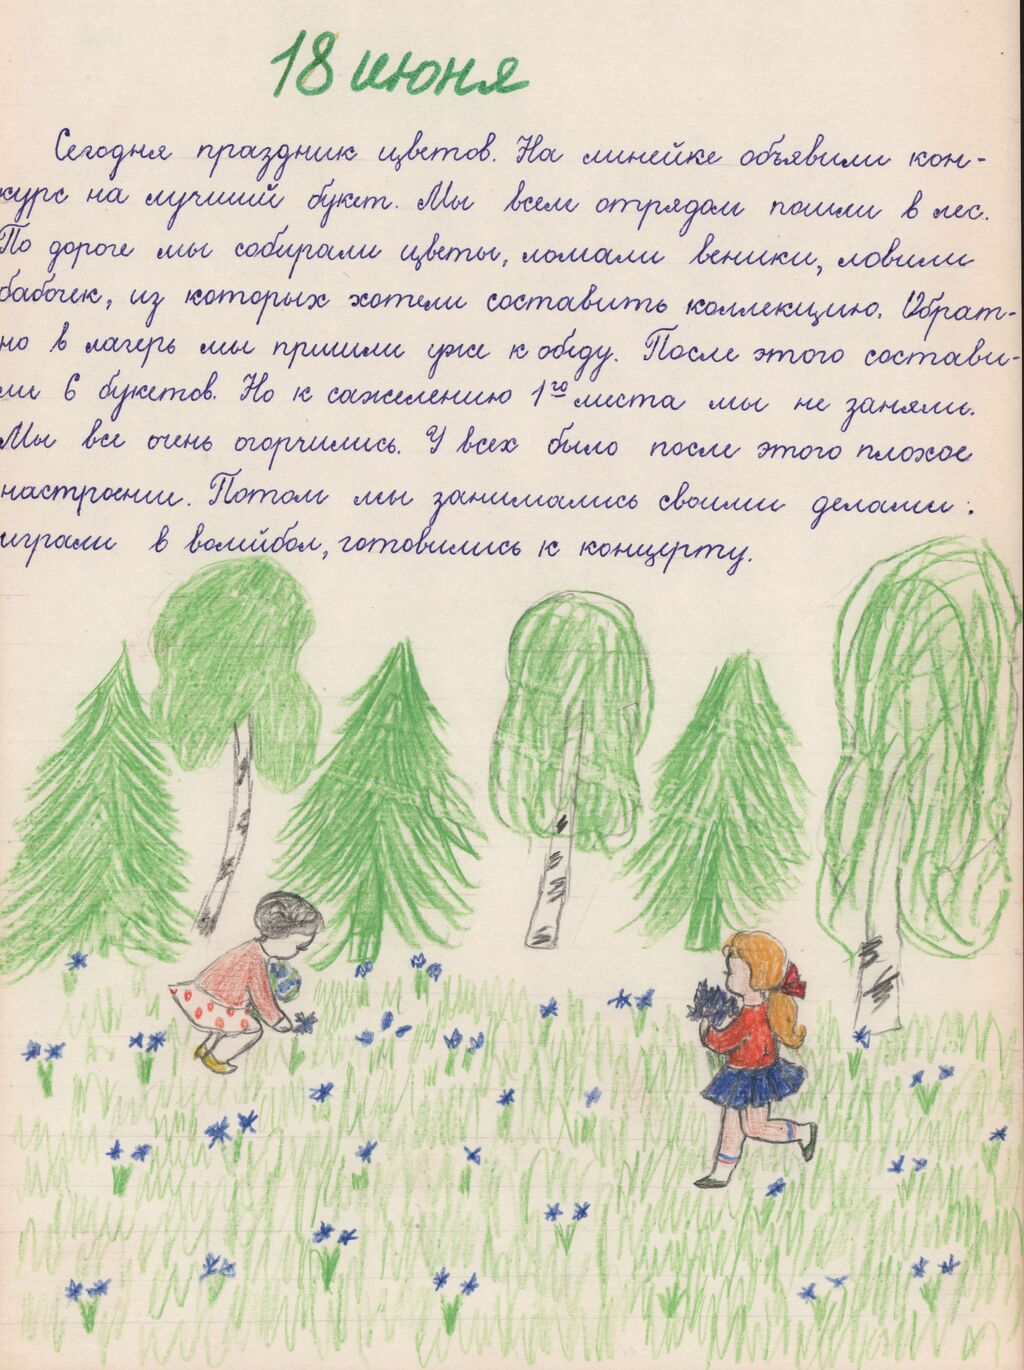 18 июня
Сегодня праздник цветов. На линейке объявили кон-
курс на лучший букет. Мы всем отрядом пошли в лес.
По дороге мы собирали цветы, ломали веники, ловили
бабочек, из которых хотели составить коллекцию. Обрат-
но в лагерь мы пришли уже к обеду. После этого состави-
ли 6 букетов. Но к сажелению 1го места мы не заняли.
Мы все очень огорчились. У всех было после этого плохое
настроение. Потом мы занимались своими делами:
играли в волейбол, готовились к концерту.